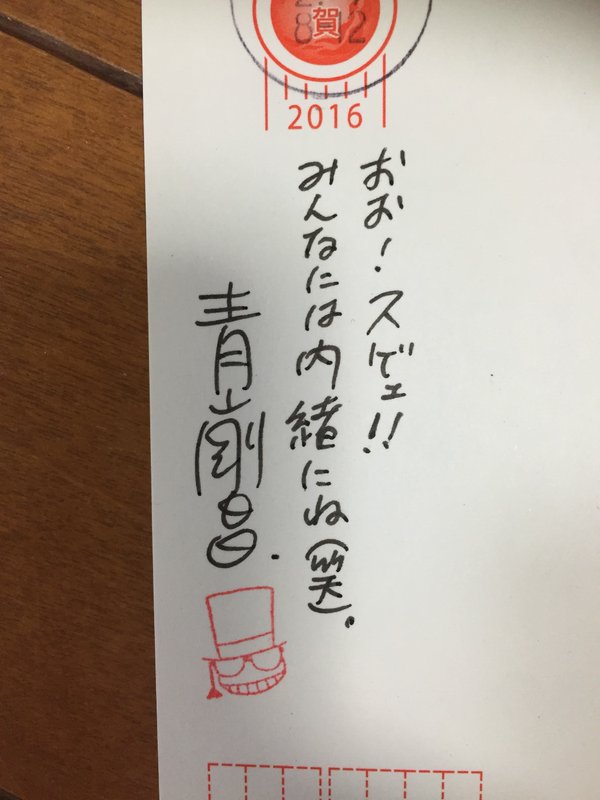 賀
8 12
2016
おお！スゲェ!!
みんなには内緒にね(笑)。
青山剛昌.